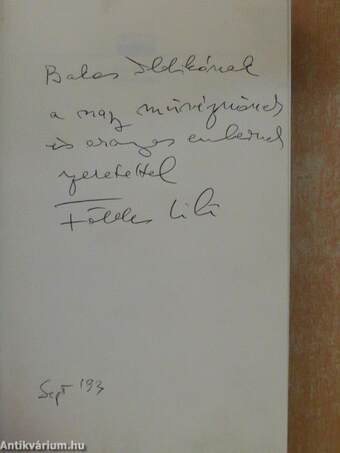 Balas Ildikónak
a nagy művésznőnek
és aranyos embernek
szeretettel
Földes Lili
Sept 193
Antikvárium.hu